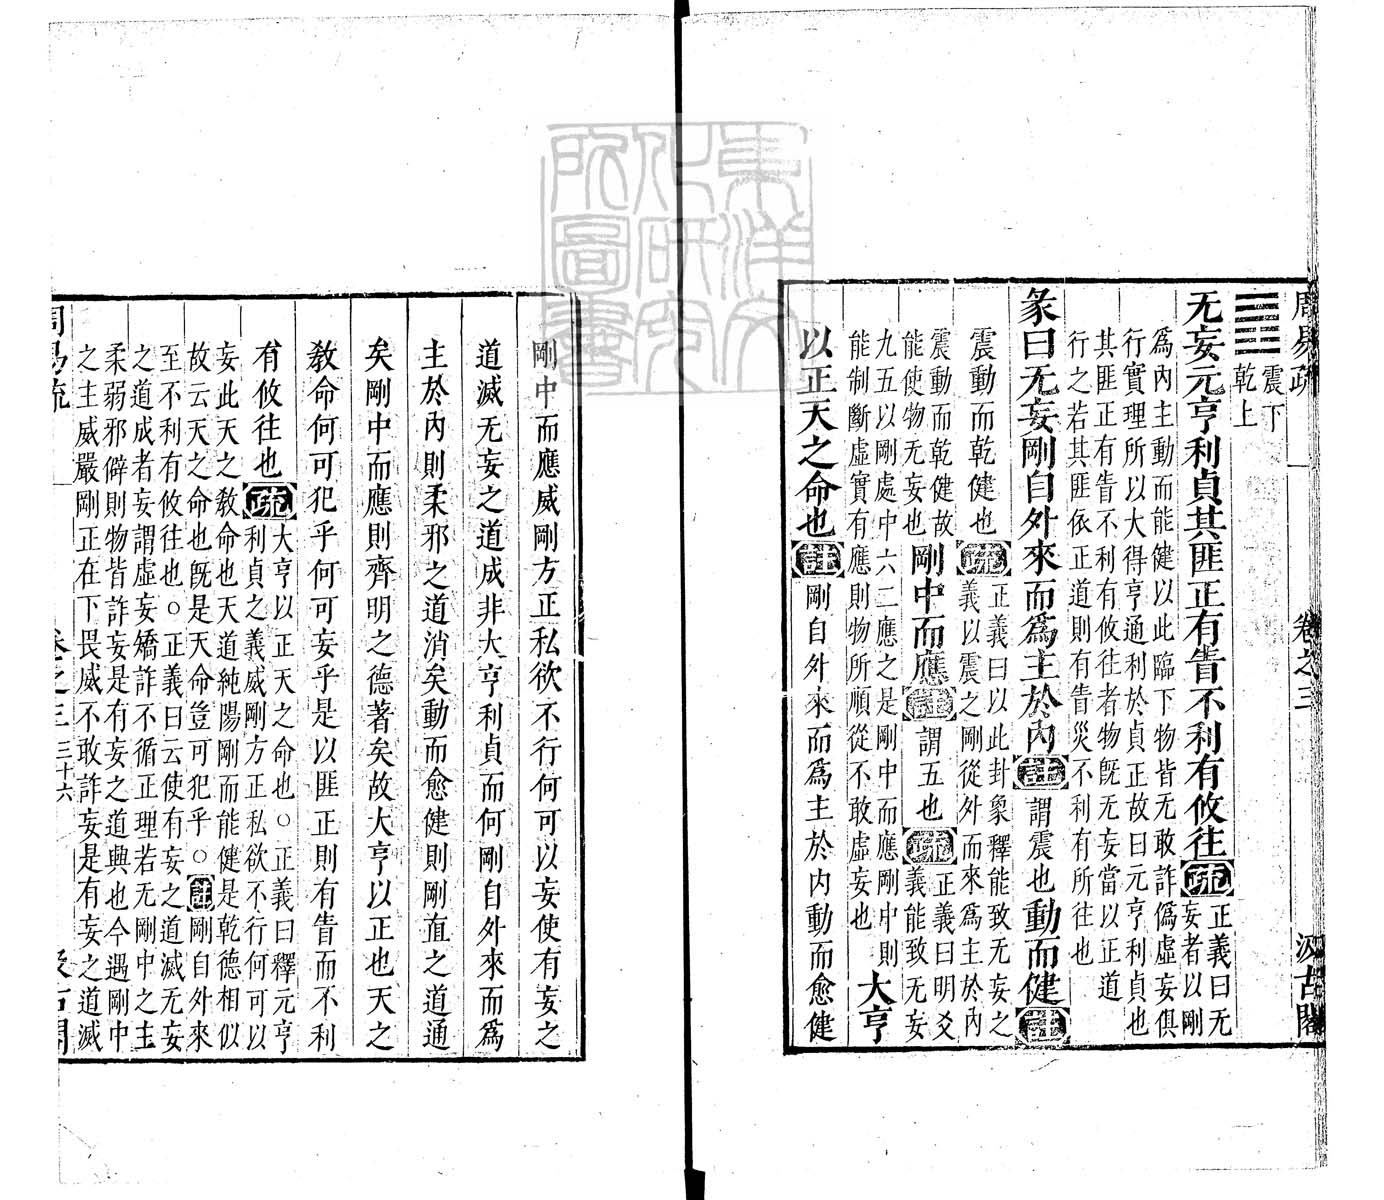 周易疏 卷之三 汲古閣
䷘ 震下
乾上
无妄元亨利貞其匪正有眚不利有攸往疏正義曰无
妄者以剛
爲內主動而能健以此臨下物皆无敢詐僞虛妄俱
行實理所以大得亨通利於貞正故曰元亨利貞也
其匪正有眚不利有攸往者物旣无妄當以正道
行之若其匪依正道則有眚災不利有所往也
彖曰无妄剛自外來而爲主於內註謂震也動而健註
震動而乾健也疏正義曰以此卦象釋能致无妄之
義以震之剛從外而來爲主於內
震動而乾健故
能使物无妄也剛中而應註謂五也疏正義曰明爻
義能致无妄
九五以剛處中六二應之是剛中而應剛中則
能制斷虛實有應則物所順從不敢虛妄也大亨
以正天之命也註剛自外來而爲主於內動而愈健
剛中而應威剛方正私欲不行何可以妄使有妄之
道滅无妄之道成非大亨利貞而何剛自外來而爲
主於內則柔邪之道消矣動而愈健則剛直之道通
矣剛中而應則齊明之德著矣故大亨以正也天之
敎命何可犯乎何可妄乎是以匪正則有眚而不利
有攸往也疏大亨以正天之命也○正義曰釋元亨
利貞之義威剛方正私欲不行何可以
妄此天之敎命也天道純陽剛而能健是乾德相似
故云天之命也旣是天命豈可犯乎○註剛自外來
至不利有攸往也○正義曰云使有妄之道滅无妄
之道成者妄謂虛妄矯詐不循正理若无剛中之主
柔弱邪僻則物皆詐妄是有妄之道興也今遇剛中
之主威嚴剛正在下畏威不敢詐妄是有妄之道滅
周易疏 卷之三 三十六 汲古閣
東洋文化研究所圖書